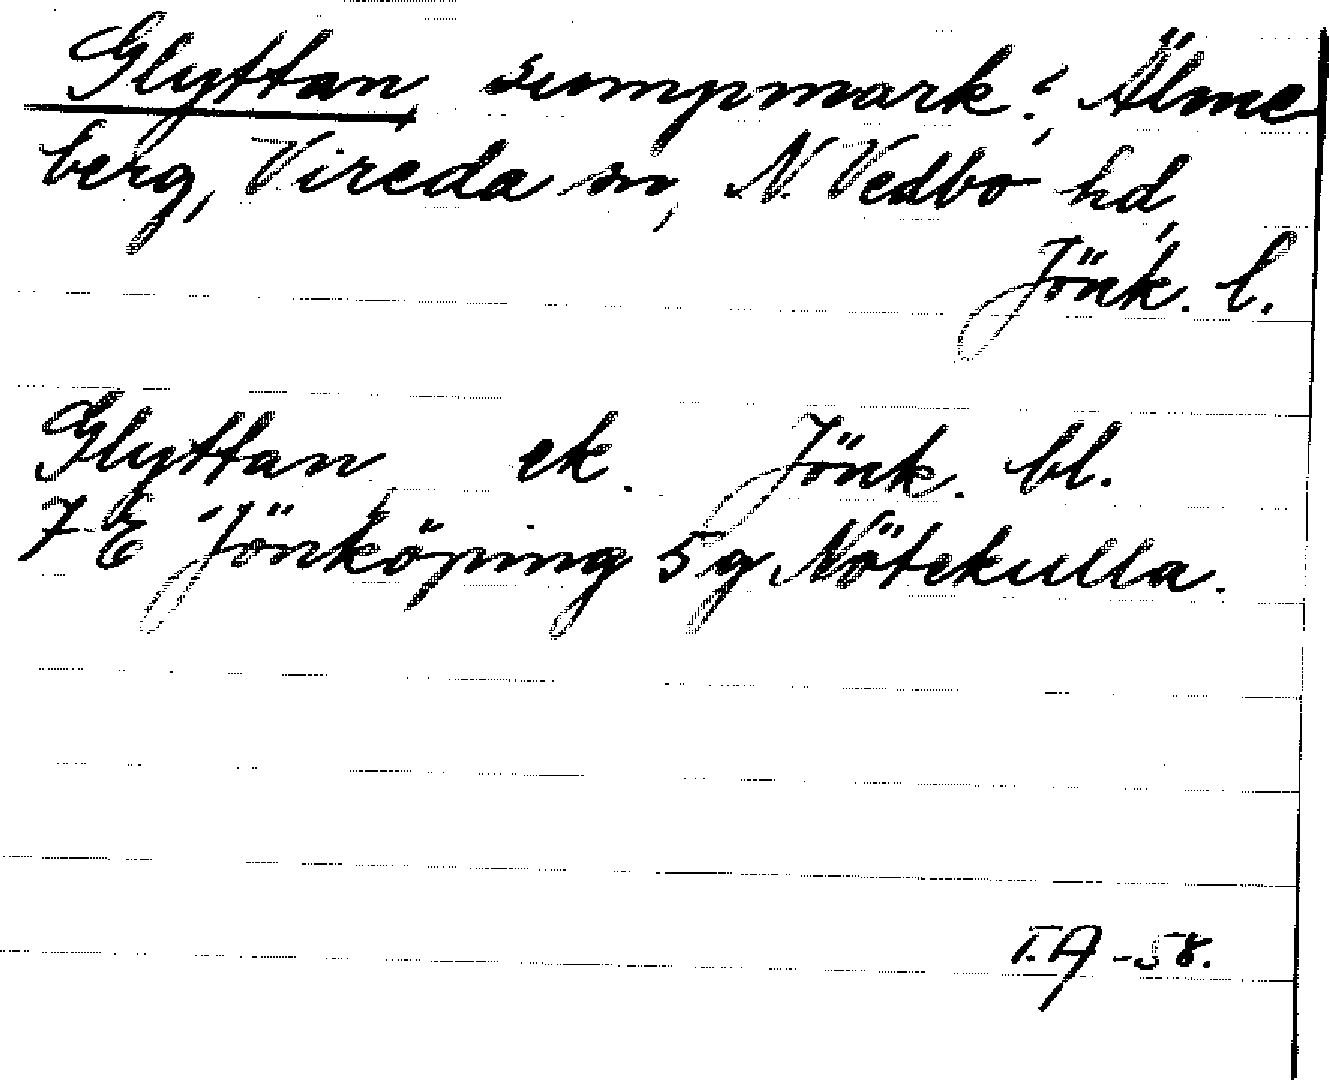 Glyttan sumpmark; Älme
berg, Vireda sn, N. Vedbo hd,
Jönk. l.
Glyttan ek. Jönk. bl.
7 E Jönköping 5 g Nötekulla.
T.A -58.